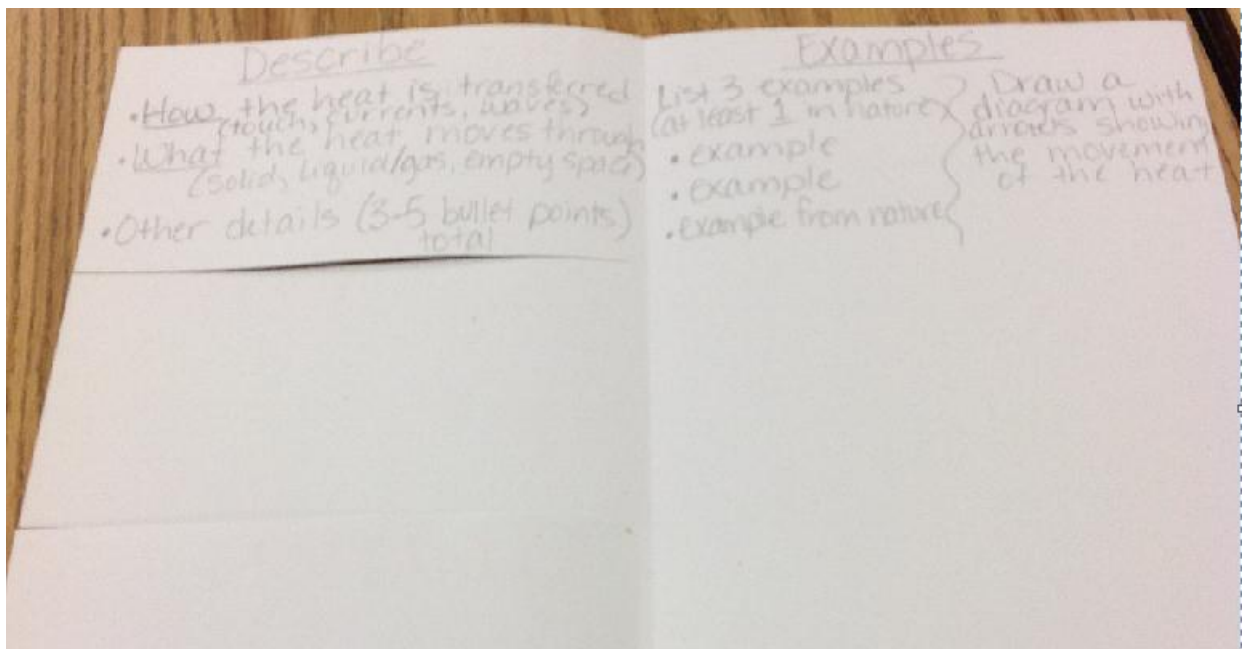 Describe
• How the heat is transferred
(touch, currents, waves)
• What the heat moves through
(solid, liquid/gas, empty space)
• Other details (3-5 bullet points)
total
Examples
List 3 examples
(at least 1 in nature)
• example
• example
• example from nature
Draw a
diagram with
arrows showing
the movement
of the heat